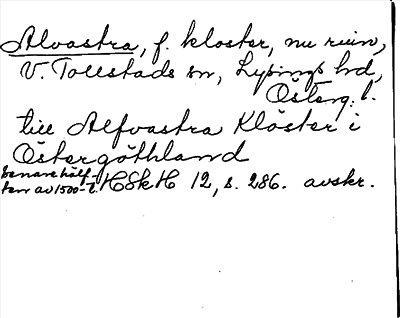 Alvastra, f. kloster, nu ruin,
V. Tollstads sn, Lysings hd,
Österg. l.
till Alfvastra Klöster i
Östergöthland
senare hälf-
ten av 1500-t. HSkH 12, s. 286. avskr.